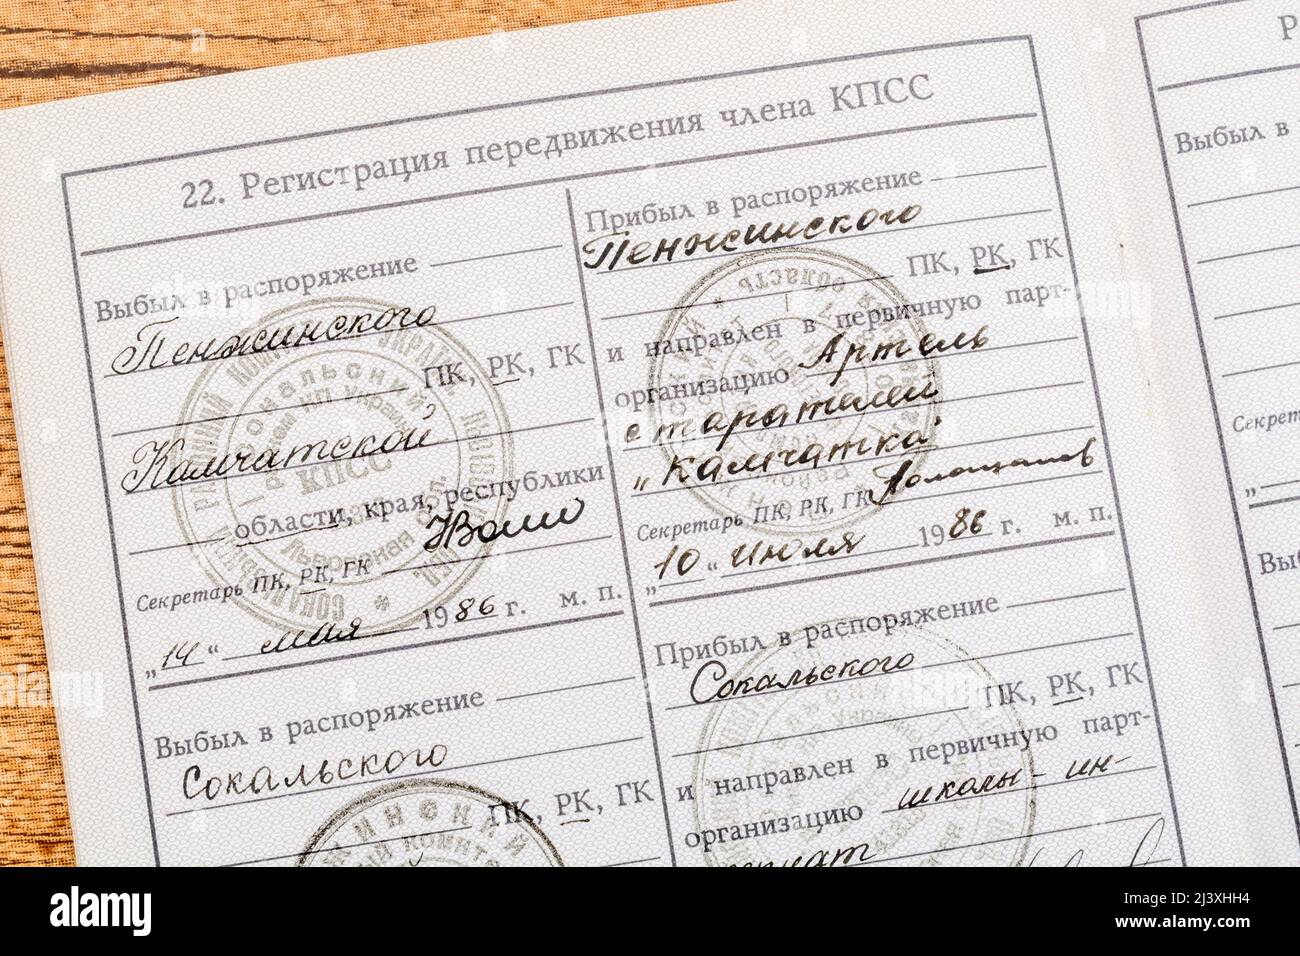 22. Регистрация передвижения члена КПСС
Выбыл в распоряжение
Пенжинского
ПК, РК, ГК
Камчатской
области, края, республики
Секретарь ПК, РК, ГК
„14“ мая 1986 г. м. п.
Выбыл в распоряжение
Сокальского
ПК, РК, ГК
Прибыл в распоряжение
Пенжинского
ПК, РК, ГК
и направлен в первичную парт-
организацию Артель
старателей
„Камчатка“
Секретарь ПК, РК, ГК
„10“ июля 1986 г. м. п.
Прибыл в распоряжение
Сокальского
ПК, РК, ГК
и направлен в первичную парт-
организацию школы-ин-
тернат
Р
Выбыл в
Секрет
„
Выб
КПСС
alamy
Image ID: 2J3XHH4
www.alamy.com